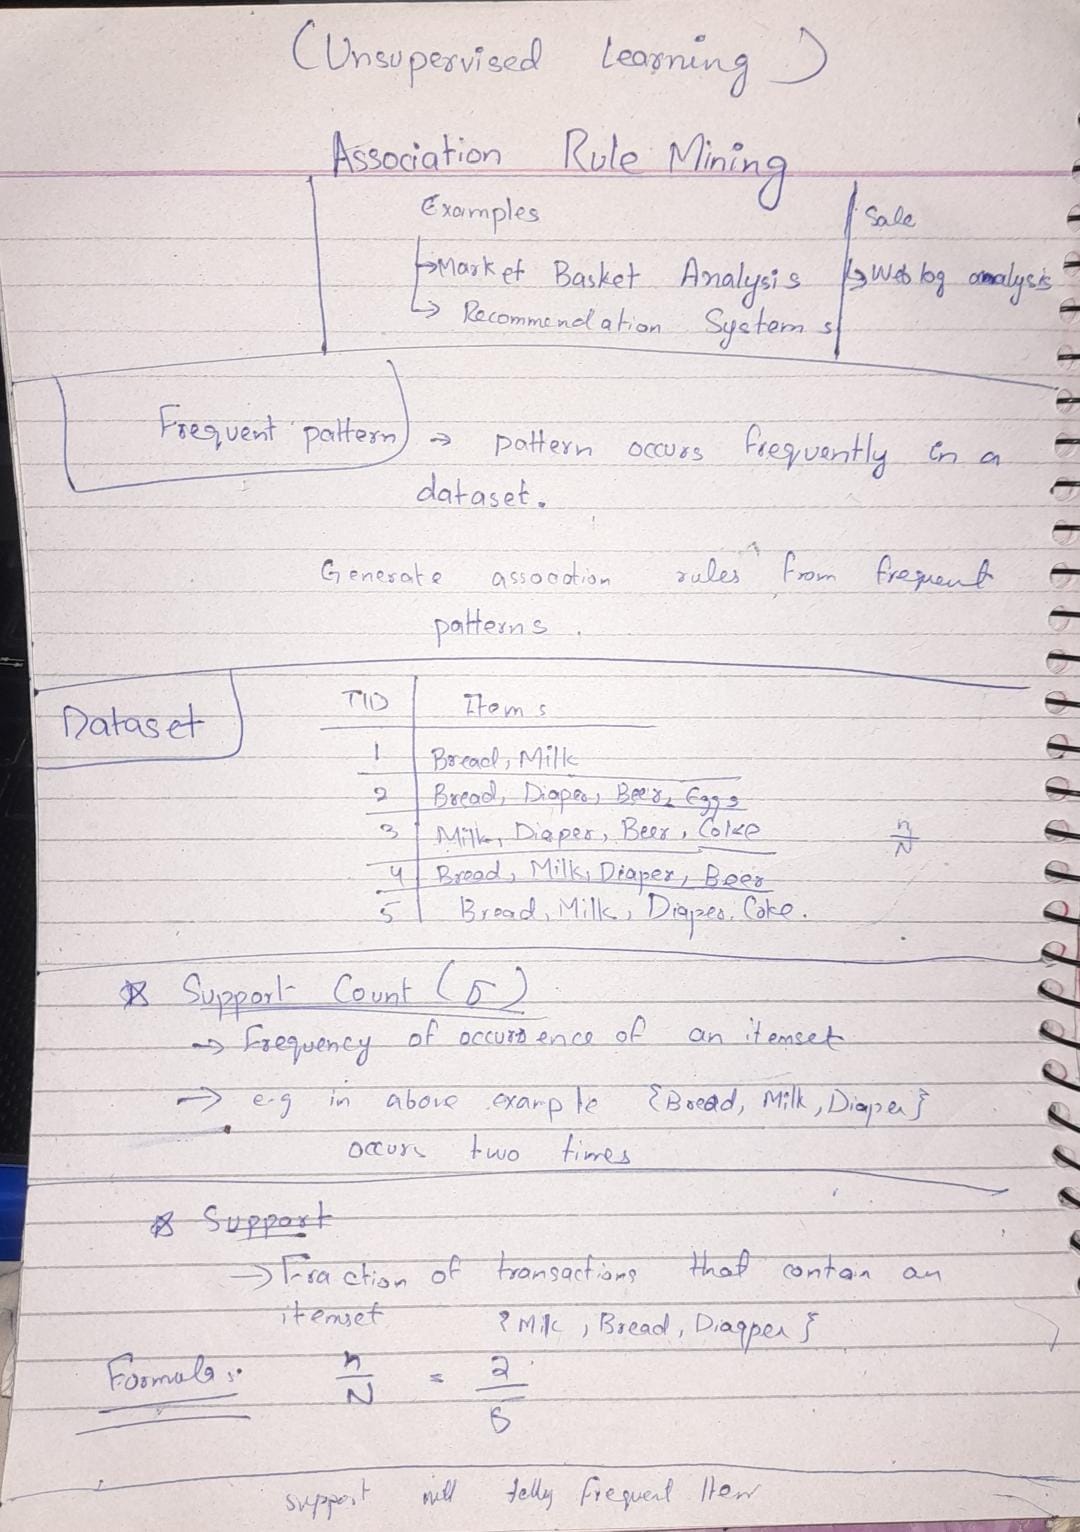 (Unsupervised Learning)
Association Rule Mining
Examples
→ Market Basket Analysis
→ Recommendation Systems
Sale
→ Web log analysis
Frequent pattern → pattern occurs frequently in a
dataset.
Generate assocation rules from frequent
patterns.
Dataset
TID Items
1 Bread, Milk
2 Bread, Diaper, Beer, Eggs
3 Milk, Diaper, Beer, Coke
n/N
4 Bread, Milk, Diaper, Beer
5 Bread, Milk, Diaper, Coke.
Support Count (σ)
→ Frequency of occurence of an itemset
→ e.g in above example {Bread, Milk, Diaper}
occurs two times
Support
→ Fraction of transactions that contain an
itemset {Milk, Bread, Diapper}
Formula: n/N = 2/5
support will telly frequent Item